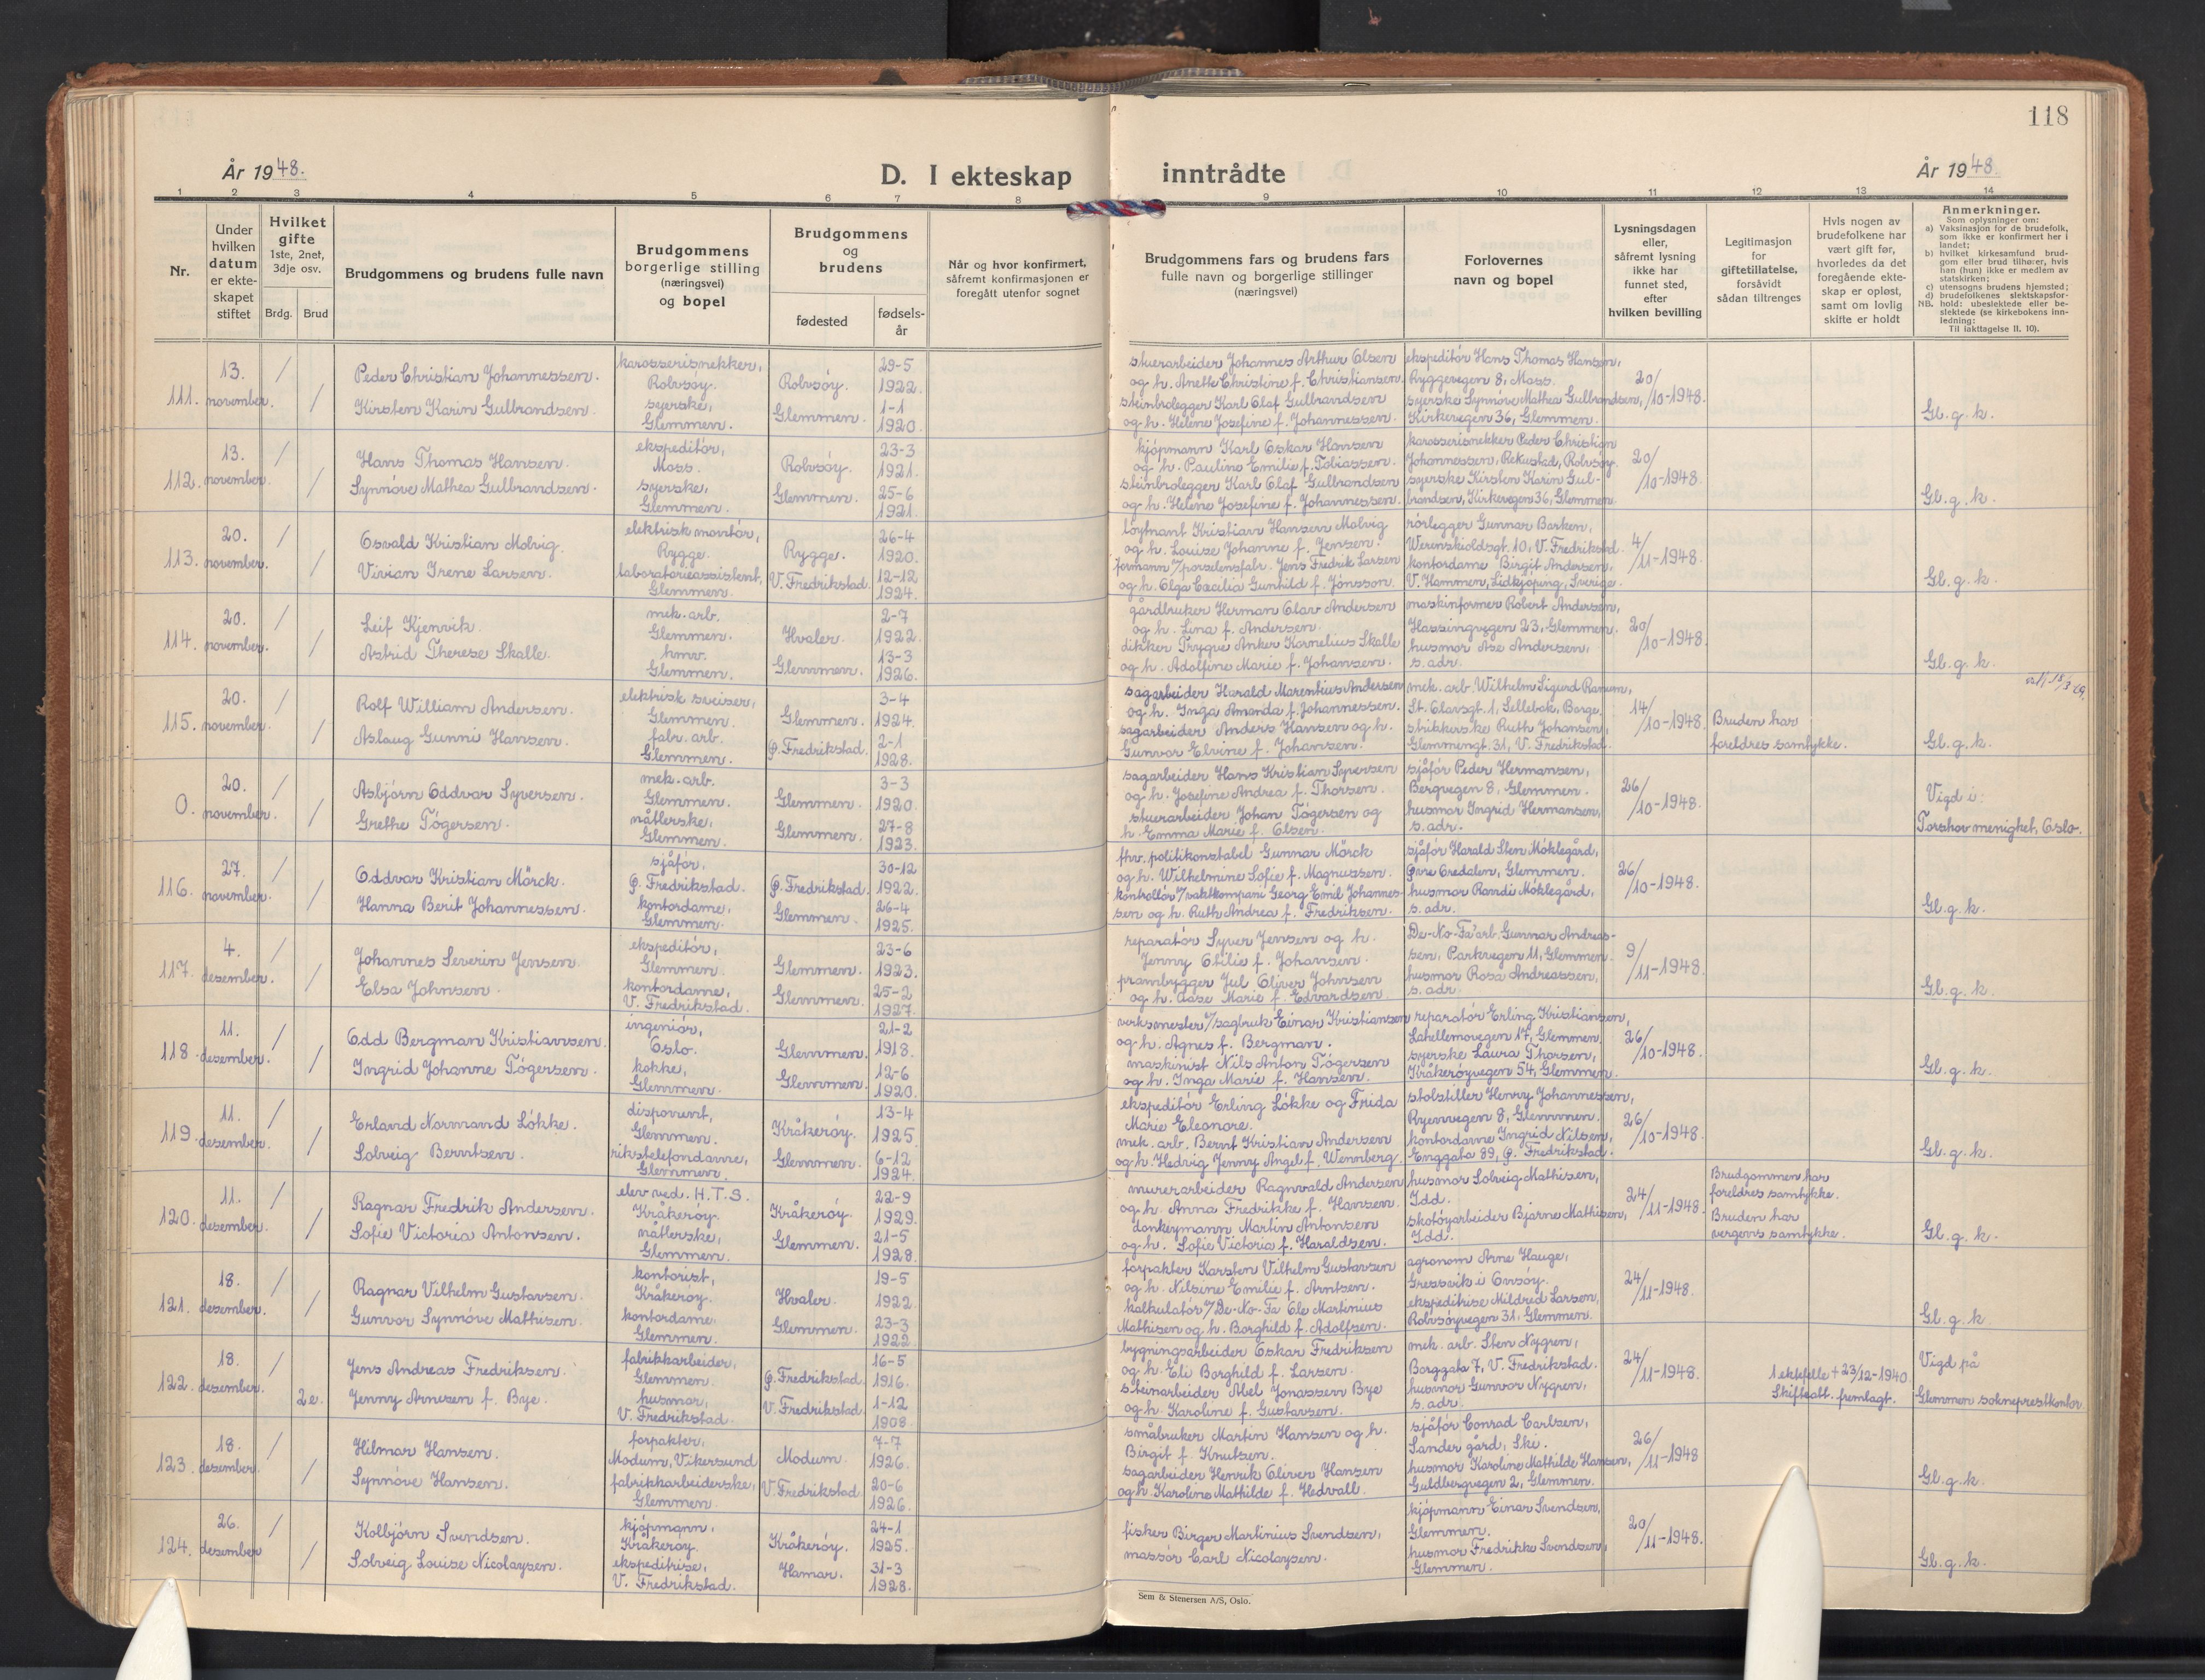 118
År 1948.
D. I ekteskap inntrådte
År 1948.
1 2 3 4 5 6 7 8 9 10 11 12 13 14
Nr.
Under hvilken datum er ekte-skapet stiftet
Hvilket gifte 1ste, 2net, 3dje osv.
Brdg. Brud
Brudgommens og brudens fulle navn
Brudgommens borgerlige stilling (næringsvei) og bopel
Brudgommens og brudens
fødested
fødsels-år
Når og hvor konfirmert, såfremt konfirmasjonen er foregått utenfor sognet
Brudgommens fars og brudens fars fulle navn og borgerlige stillinger (næringsvei)
Forlovernes navn og bopel
Lysningsdagen eller, såfremt lysning ikke har funnet sted, efter hvilken bevilling
Legitimasjon for giftetillatelse, forsåvidt sådan tiltrenges
Hvis nogen av brudefolkene har vært gift før, hvorledes da det foregående ekte-skap er opløst, samt om lovlig skifte er holdt
Anmerkninger.
Som oplysninger om:
a) Vaksinasjon for de brudefolk, som ikke er konfirmert her i landet;
b) hvilket kirkesamfund brud-gom eller brud tilhører, hvis han (hun) ikke er medlem av statskirken;
c) utensogns brudens hjemsted;
d) brudefolkenes slektskapsfor-hold: ubeslektede eller be-slektede (se kirkebokens inn-ledning:
NB. Til iakttagelse II. 10).
111. 13. november. / /
Peder Christian Johannessen.
Kirsten Karin Gulbrandsen.
karosserisnekker,
Rolvsøy.
syerske,
Glemmen.
Rolvsøy.
Glemmen.
29-5
1922.
1-1
1920.
stuerarbeider Johannes Arthur Olsen
og h. Anette Christine f. Christiansen.
steinbrolegger Karl Olaf Gulbrandsen
og h. Helene Josefine f. Johannessen.
ekspeditør Hans Thomas Hansen,
Ryggevegen 8, Moss.
syerske Synnøve Mathea Gulbrandsen,
Kirkevegen 36, Glemmen.
20/10-1948.
Gl. g. k.
112. 13. november. / /
Hans Thomas Hansen.
Synnøve Mathea Gulbrandsen.
ekspeditør,
Moss.
syerske,
Glemmen.
Rolvsøy.
Glemmen.
23-3
1921.
25-6
1921.
kjøpmann Karl Oskar Hansen
og h. Pauline Emilie f. Tobiassen.
steinbrolegger Karl Olaf Gulbrandsen
og h. Helene Josefine f. Johannessen.
karosserisnekker Peder Christian
Johannessen, Rekustad, Rolvsøy.
syerske Kirsten Karin Gul-
brandsen, Kirkevegen 36, Glemmen.
20/10-1948.
Gl. g. k.
113. 20. november. / /
Osvald Kristian Molvig.
Vivian Irene Larsen.
elektrisk montør,
Rygge.
laboratorieassistent,
Glemmen.
Rygge.
V. Fredrikstad.
26-4
1920.
12-12
1924.
løytnant Kristian Hansen Molvig
og h. Louise Johanne f. Jensen.
formann v/porselensfabr. Jens Fredrik Larsen
og h. Olga Cæcilia Gunhild f. Jönsson.
rørlegger Gunnar Barken,
Werenskioldsgt. 10, V. Fredrikstad.
kontordame Birgit Andersen,
V. Hammen, Lidkjøping, Sverige.
4/11-1948.
Gl. g. k.
114. 20. november. / /
Leif Kjenvik.
Astrid Therese Skalle.
mek. arb.
Glemmen.
hmv.
Glemmen.
Hvaler.
Glemmen.
2-7
1922.
13-3
1926.
gårdbruker Herman Olav Andersen
og h. Lina f. Andersen.
dikker Trygve Anker Kornelius Skalle
og h. Adolfine Marie f. Johansen.
maskinformer Robert Andersen,
Hassingvegen 23, Glemmen.
husmor Åse Andersen,
s. adr.
20/10-1948.
Gl. g. k.
115. 20. november. / /
Rolf William Andersen.
Aslaug Gunni Hansen.
elektrisk sveiser,
Glemmen.
fabr. arb.
Glemmen.
Glemmen.
Ø. Fredrikstad.
3-4
1924.
2-1
1928.
sagarbeider Harald Marentius Andersen
og h. Inga Amanda f. Johannessen.
sagarbeider Anders Hansen og h.
Gunvor Elvine f. Johansen.
mek. arb. Wilhelm Sigurd Ranum,
St. Olavsgt. 1, Sellebak, Borge.
strikkerske Ruth Johansen,
Glemmengt. 31, V. Fredrikstad.
14/10-1948.
Bruden har
foreldres samtykke.
Gl. g. k.
0. 20. november. / /
Asbjørn Oddvar Syversen.
Grethe Tøgersen.
mek. arb.
Glemmen.
nåtlerske,
Glemmen.
Glemmen.
Glemmen.
3-3
1920.
27-8
1923.
sagarbeider Hans Kristian Syversen
og h. Josefine Andrea f. Thorsen.
stuerarbeider Johan Tøgersen og
h. Emma Marie f. Olsen.
sjåfør Peder Hermansen,
Bergvegen 8, Glemmen.
husmor Ingrid Hermansen,
s. adr.
26/10-1948.
Vigd i:
Torshov menighet, Oslo.
116. 27. november. / /
Oddvar Kristian Mörck.
Hanna Berit Johannessen.
sjåfør,
Ø. Fredrikstad.
kontordame,
Glemmen.
Ø. Fredrikstad.
Glemmen.
30-12
1922.
26-4
1925.
fhv. politikonstabel Gunnar Mörck
og h. Wilhelmine Sofie f. Magnussen.
kontrollør v/vaktkompani Georg Emil Johannes-
sen og h. Ruth Andrea f. Fredriksen.
sjåfør Harald Sten Møklegård,
Øvre Oredalen, Glemmen.
husmor Randi Møklegård,
s. adr.
26/10-1948.
Gl. g. k.
117. 4. desember. / /
Johannes Severin Jensen
Elsa Johnsen.
ekspeditør,
Glemmen.
kontordame,
V. Fredrikstad.
Glemmen.
Glemmen.
23-6
1923.
25-2
1927.
reparatør Syver Jensen og h.
Jenny Otilie f. Johansen.
prambygger Jul Oliver Johnsen
og h. Aase Marie f. Edvardsen.
De-No-Fa'arb. Gunnar Andreas-
sen, Parkvegen 11, Glemmen.
husmor Rosa Andreassen,
s. adr.
9/11-1948.
Gl. g. k.
118. 11. desember. / /
Odd Bergman Kristiansen.
Ingrid Johanne Tøgersen.
ingeniør,
Oslo.
kokke,
Glemmen.
Glemmen.
Glemmen.
21-2
1918.
12-6
1920.
verksmester v/sagbruk Einar Kristiansen
og h. Agnes f. Bergman.
maskinist Nils Anton Tøgersen
og h. Inga Marie f. Hansen.
reparatør Erling Kristiansen,
Lahellemovegen 17, Glemmen.
syerske Laura Thorsen,
Kråkerøyvegen 54, Glemmen.
26/10-1948.
Gl. g. k.
119. 11. desember. / /
Erland Normand Løkke.
Solveig Berntsen.
disponent,
Glemmen.
rikstelefondame,
Glemmen.
Kråkerøy.
Glemmen.
13-4
1925
6-12
1924.
ekspeditør Erling Løkke og Frida
Marie Eleonore.
mek. arb. Bernt Kristian Andersen
og h. Hedvig Jenny Angel f. Wennberg.
stolstiller Henry Johannessen,
Ryenvegen 8, Glemmen.
kontordame Ingrid Nilsen,
Enggata 89, Ø. Fredrikstad.
26/10-1948.
Gl. g. k.
120. 11. desember. / /
Ragnar Fredrik Andersen.
Sofie Victoria Antonsen.
elev ved. H.T.S.
Kråkerøy.
nåtlerske,
Glemmen.
Kråkerøy.
Glemmen.
22-9
1929.
21-5
1928.
murerarbeider Ragnvald Andersen
og h. Anna Fredrikke f. Hansen.
donkeymann Martin Antonsen
og h. Sofie Victoria f. Haraldsen.
husmor Solveig Mathisen,
Idd.
skotøyarbeider Bjarne Mathisen,
Idd.
24/11-1948.
Brudgommen har
foreldres samtykke.
Bruden har
vergens samtykke.
Gl. g. k.
121. 18. desember. / /
Ragnar Vilhelm Gustavsen.
Gunvor Synnøve Mathisen.
kontorist,
Kråkerøy.
kontordame,
Glemmen.
Hvaler.
Glemmen.
19-5
1922.
23-3
1922.
forpakter Karsten Vilhelm Gustavsen
og h. Nilsine Emilie f. Arntsen.
kalkulatør v/De-No-Fa Ole Martinius
Mathisen og h. Borghild f. Adolfsen.
agronom Arne Hauge,
Gressvik i Onsøy.
ekspeditrise Mildred Larsen,
Rolvsøyvegen 31, Glemmen.
24/11-1948.
Gl. g. k.
122. 18. desember. / 2e.
Jens Andreas Fredriksen.
Jenny Arnesen f. Bye.
fabrikkarbeider,
Glemmen.
husmor,
V. Fredrikstad.
Ø. Fredrikstad.
V. Fredrikstad
16-5
1916.
1-12
1908
bygningsarbeider Oskar Fredriksen
og h. Eli Borghild f. Larsen.
steinarbeider Abel Jonassen Bye
og h. Karoline f. Gustavsen.
mek. arb. Sten Nygren,
Borggata 7, V. Fredrikstad.
husmor Gunvor Nygren,
s. adr.
24/11-1948.
1 ektefelle + 23/12-1940.
Skifteatt. fremlagt.
Vigd på
Glemmen sokneprestkontor.
123. 18. desember. / /
Hilmar Hansen.
Synnøve Hansen.
forpakter,
Modum, Vikersund
fabrikkarbeiderske,
Glemmen.
Modum.
V. Fredrikstad
7-7
1926.
20-6
1926.
småbruker Martin Hansen og h.
Birgit f. Knutsen.
sagarbeider Henrik Oliver Hansen
og h. Karoline Mathilde f. Hedvall.
sjåfør Conrad Carlsen,
Sander gård, Ski.
husmor Karoline Mathilde Hansen,
Guldbergvegen 2, Glemmen.
26/11-1948
Gl. g. k.
124. 26. desember / /
Kolbjørn Svendsen.
Solveig Louise Nicolaysen.
kjøpmann,
Kråkerøy.
ekspeditrise,
V. Fredrikstad.
Kråkerøy.
Hamar.
24-1
1925.
31-3
1928.
fisker Birger Martinius Svendsen,
massør Carl Nicolaysen.
kjøpmann Einar Svendsen,
Glemmen.
husmor Fredrikke Svendsen,
Glemmen.
20/11-1948.
Gl. g. k.
Sem & Stenersen A/S, Oslo.